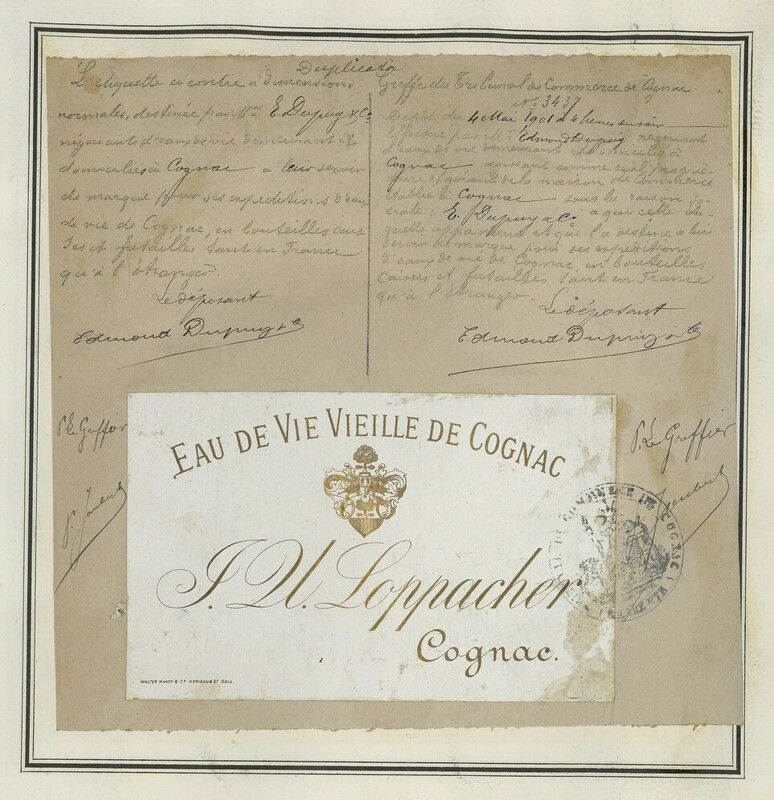 Duplicata
L'etiquette ci contre à dimensions
normales, destinée par Mrs E. Dupuy & Co
négociants d'eaux de vie demeurant &
domiciliés à Cognac a leur servir
de marque pour ses expéditions d'eaux
de vie de Cognac, en bouteilles caisses
et futailles tant en France
qu'à l'étranger.
Le déposant
Edmond Dupuy & Co
Greffe du Tribunal de Commerce de Cognac
No 3437
Dépôt du 4 Mai 1901 à 4 heures du soir
Effectué par Mr Edmond Dupuy négociant
d'eaux de vie demeurant et domicilié à
Cognac agissant comme seul propriétaire
et gérant de la maison de Commerce
établie à Cognac sous la raison sociale
: E. Dupuy & Co a qui cette étiquette
appartient et qui l'a destinée a lui
servir de marque pour ses expéditions
d'eaux de vie de Cognac en bouteilles
caisses et futailles tant en France
qu'à l'étranger.
Le déposant
Edmond Dupuy & Co
P. Le Greffier
P. Joubert
P. Le Greffier
Joubert
EAU DE VIE VIEILLE DE COGNAC
J. U. Loppacher
Cognac.
WALTER MARTY & Cie HERISAU & ST. GALL.
COMMERCE DE COGNAC